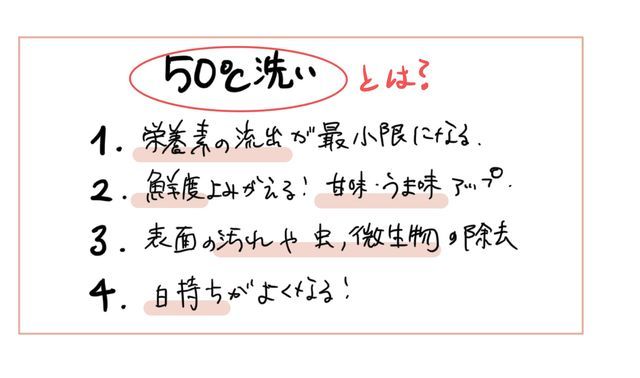 50℃洗い とは?
1. 栄養素の流出が最小限になる.
2. 鮮度よみがえる! 甘味・うま味アップ.
3. 表面の汚れや虫,微生物の除去
4. 日持ちがよくなる!